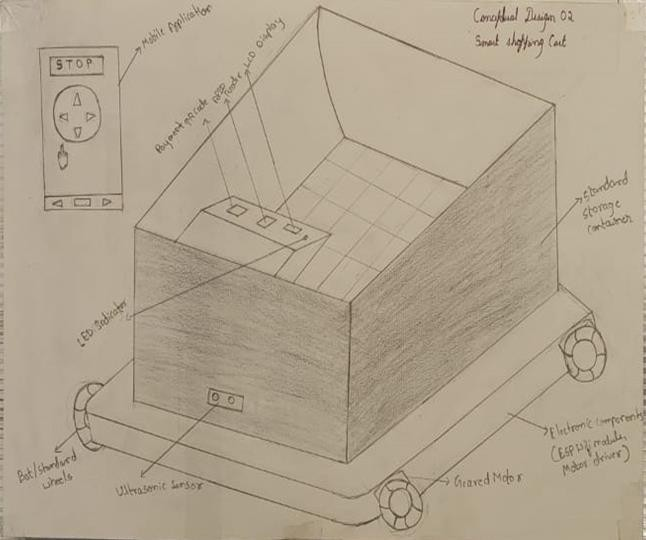 Conceptual Design 02
Smart shopping Cart
Mobile Application
STOP
LCD Display
Payment QR code
Standard
Storage
Container
LED Indicator
Bot/standard
wheels
Ultrasonic Sensor
Geared Motor
Electronic components
(ESP Wifi module,
Motor driver)